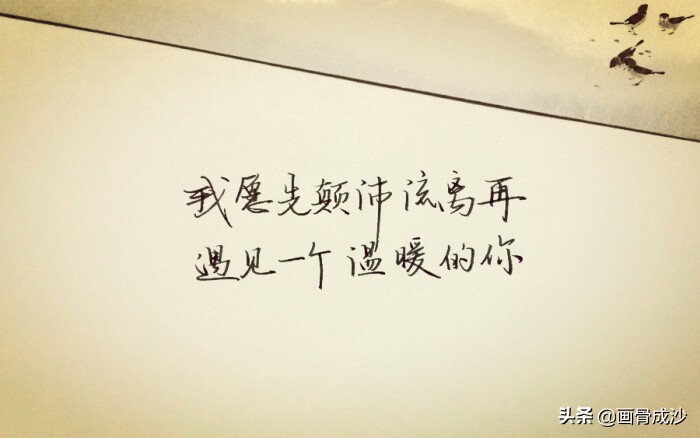 我愿先颠沛流离再
遇见一个温暖的你
头条 @画骨成沙